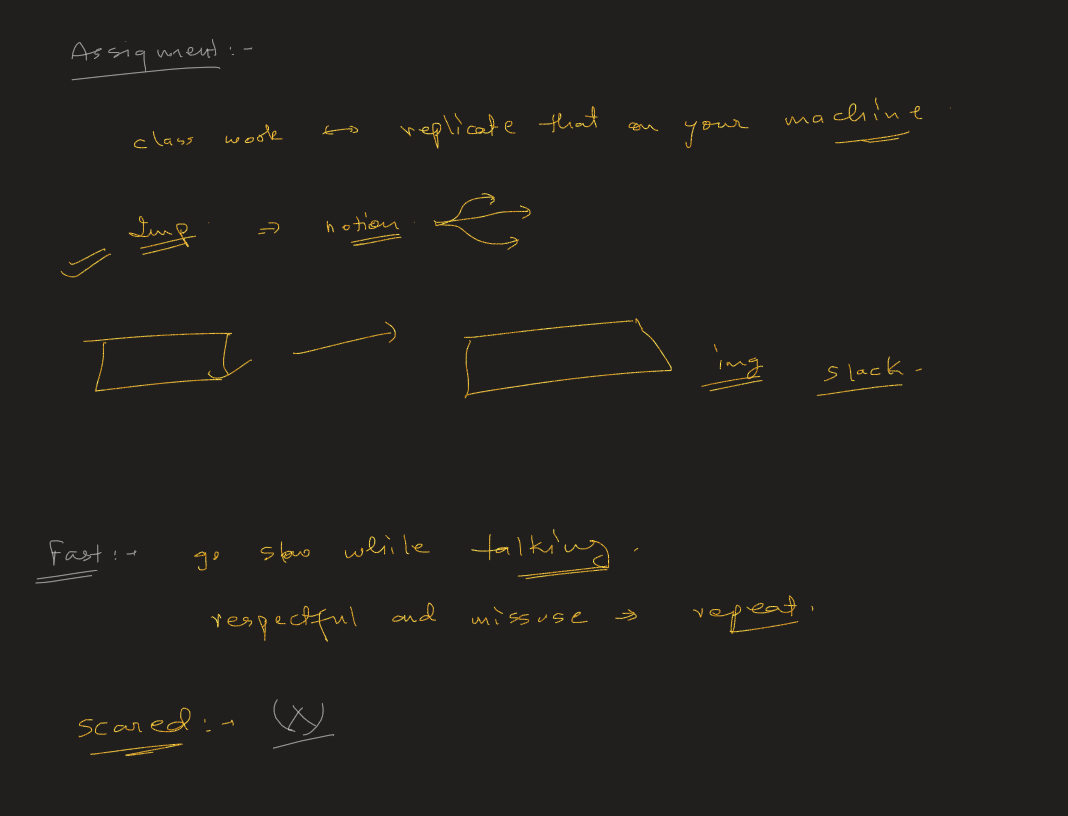 Assigment:-
class work ↔ replicate that on your machine
Imp ⇒ notion
img slack.
Fast:→ go slow while talking.
respectful and missuse → repeat.
scared:→ (X)